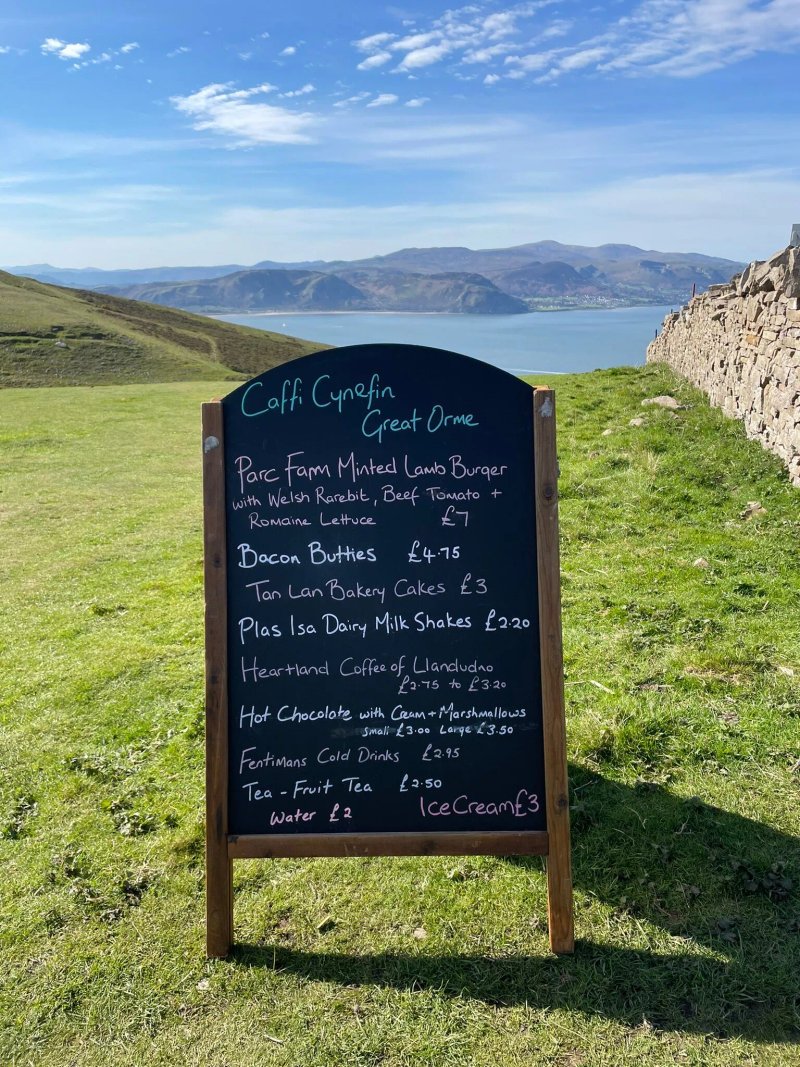 Caffi Cynefin
Great Orme
Parc Farm Minted Lamb Burger
with Welsh Rarebit, Beef Tomato +
Romaine Lettuce £7
Bacon Butties £4.75
Tan Lan Bakery Cakes £3
Plas Isa Dairy Milk Shakes £2.20
Heartland Coffee of Llandudno
£2.75 to £3.20
Hot Chocolate with Cream + Marshmallows
Small £3.00 Large £3.50
Fentimans Cold Drinks £2.95
Tea - Fruit Tea £2.50
Water £2 Ice Cream £3